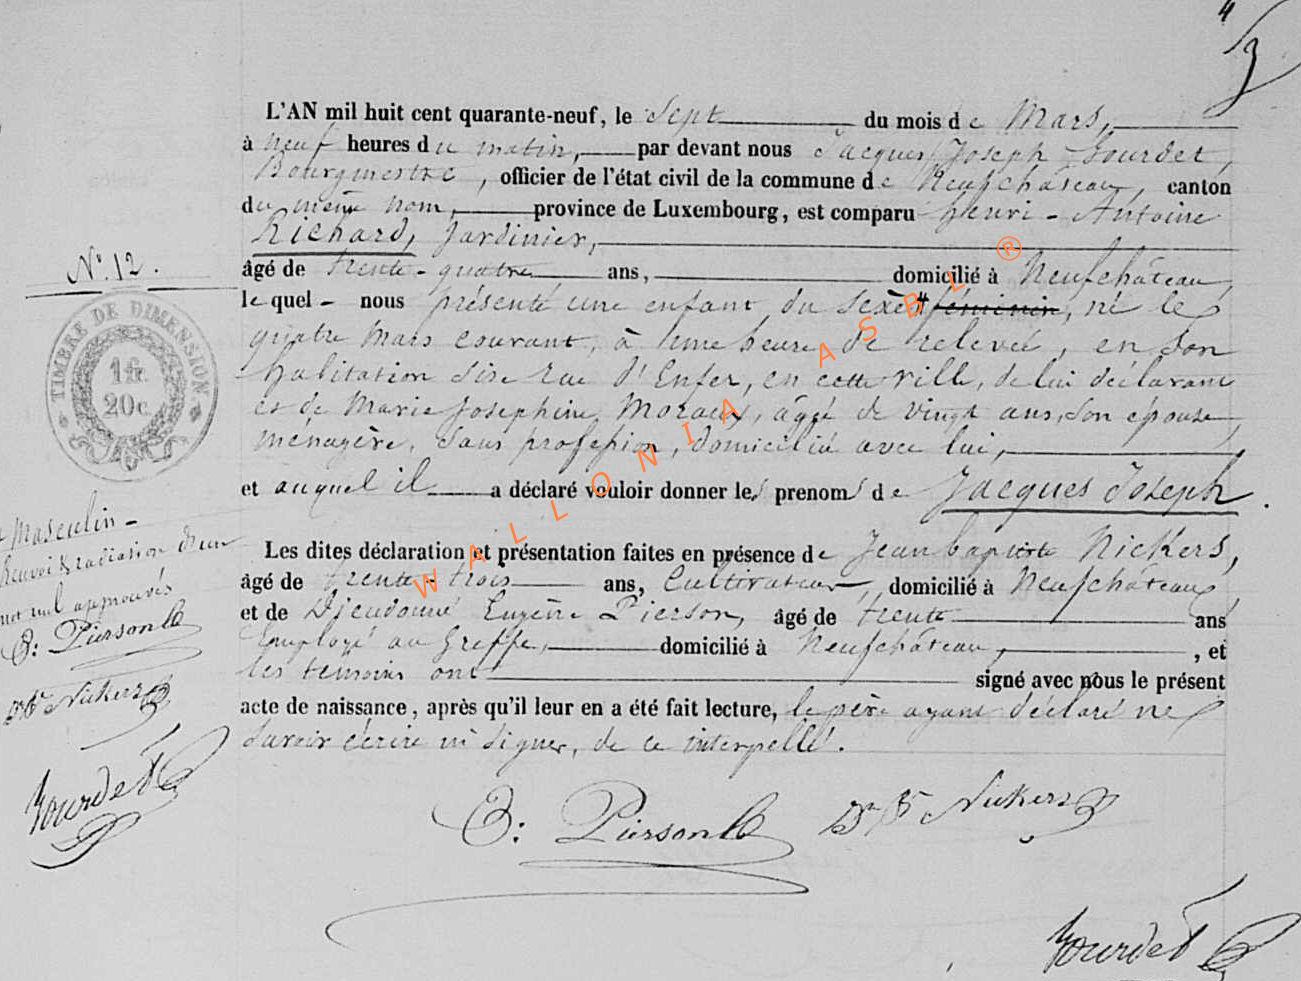 3
L'AN mil huit cent quarante-neuf, le Sept du mois de Mars,
à neuf heures du matin, par devant nous Jacques Joseph Gourdet,
Bourgmestre, officier de l'état civil de la commune de Neufchâteau, canton
du même nom, province de Luxembourg, est comparu henri-Antoine
Richard, Jardinier,
N° 12.
âgé de trente-quatre ans, domicilié à Neufchâteau
lequel nous présenté une enfant du sexe # féminin, né le
quatre Mars courant, à une heure de relevée, en son
habitation sise rue d'Enfer, en cette ville, de lui déclarant
et de Marie Josephine Moraux, âgée de vingt ans, son épouse
ménagère, sans profession, domicilié avec lui,
et auquel il a déclaré vouloir donner les prenoms de Jacques Joseph.
TIMBRE DE DIMENSION
1 fr.
20 c.
masculin
Renvoi & radiation d'un
mot nul approuvés
E: Pierson
JnBte Nickers
Gourdet
Les dites déclaration et présentation faites en présence de Jean baptiste Nickers,
âgé de trente-trois ans, Cultivateur, domicilié à Neufchâteau
et de Dieudonné Eugène Pierson, âgé de trente ans
Employé au Greffe, domicilié à Neufchâteau, et
les temoins ont signé avec nous le présent
acte de naissance, après qu'il leur en a été fait lecture, le père ayant déclaré ne
savoir écrire ni signer, de ce interpellé.
E: Pierson JnBte Nickers
Gourdet
WALLONIA ASBL ®